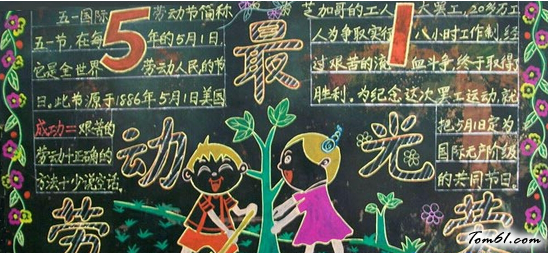 五一国际劳动节简称
五一节，在每年的5月1日。
它是全世界劳动人民的节
日。此节源于1886年5月1美国
芝加哥的工人大罢工，20多万工
人为争取实行八小时工作制，经
过艰苦的流血斗争终于取得
胜利，为纪念这次罢工运动就
把5月1日定为
国际无产阶级
的共同节日。
5 1
成功=艰苦的
劳动+正确的
方法+少说空话。
劳动最光荣
Tom61.com